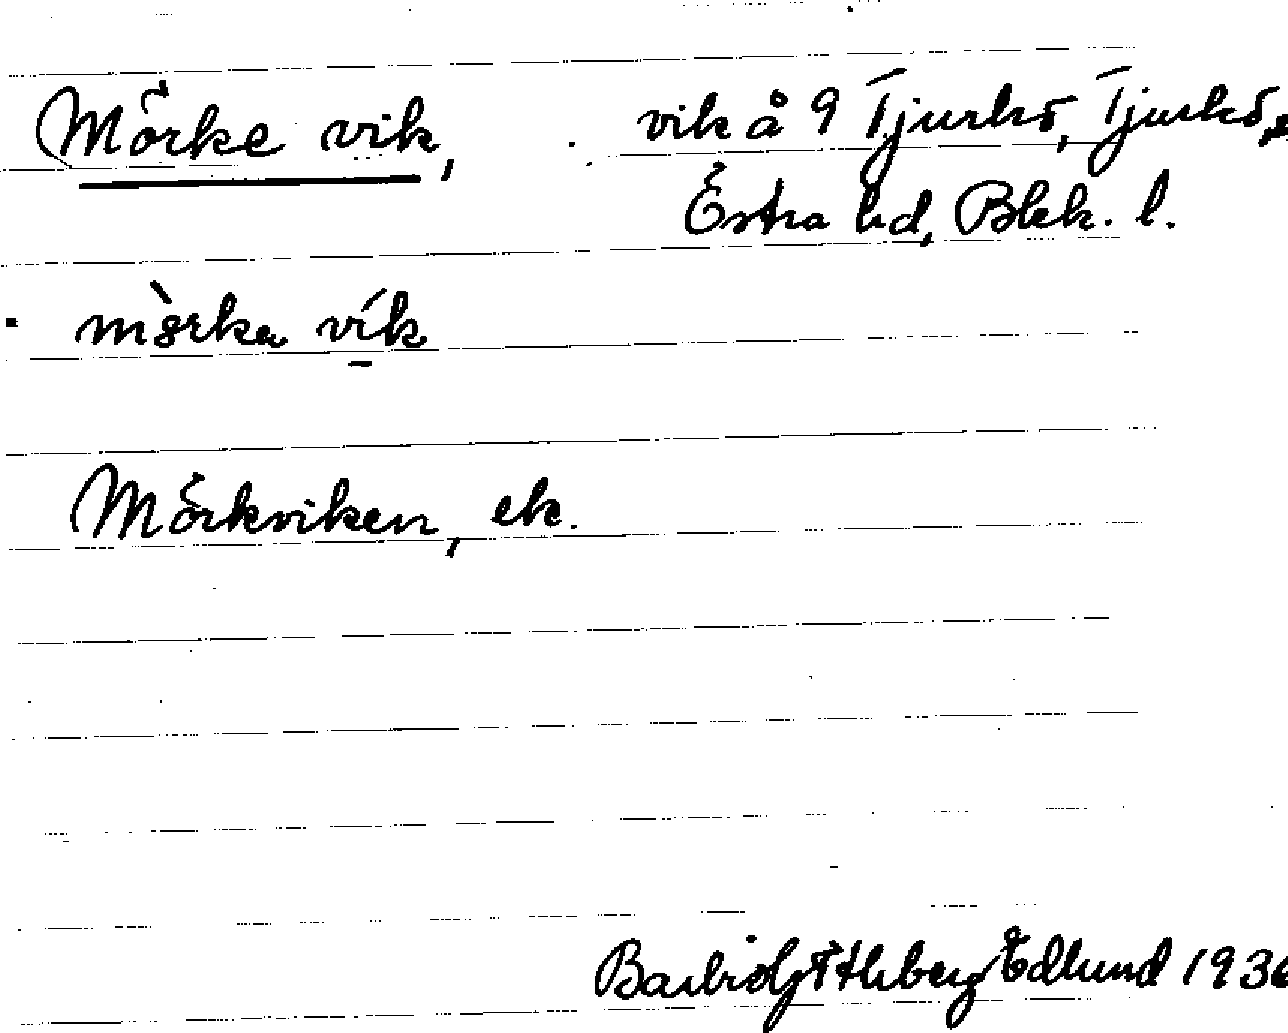 Mörke vik, vik å 9 Tjurkö, Tjurkö,
Östra hd, Blek. l.
mörka vik
Mörkviken, ek.
Edlund 1936